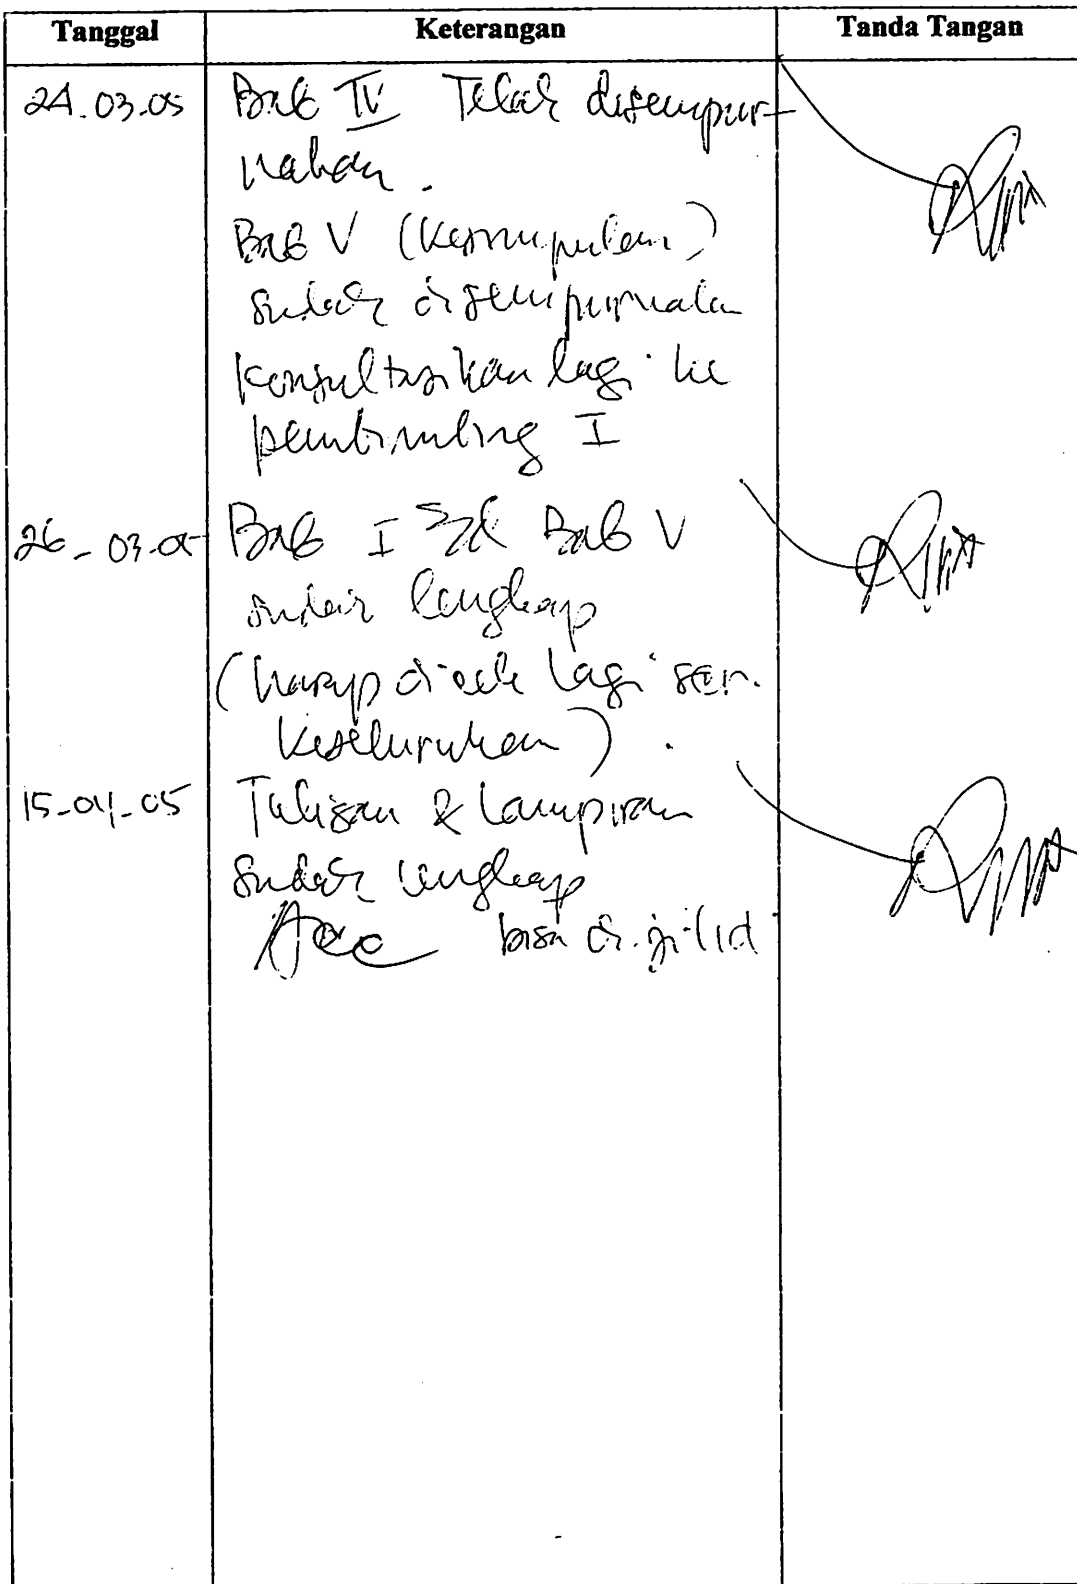 Tanggal Keterangan Tanda Tangan
24.03.05 Bab IV Telah disempur-
nakan.
Bab V (Kesimpulan)
sudah disempurnakan
konsultasikan lagi ke
pembimbing I
26-03-05 Bab I s/d Bab V
sudah lengkap
(harap dicek lagi scr.
keseluruhan).
15-04-05 Tulisan & Lampiran
sudah lengkap
Acc bisa di jilid